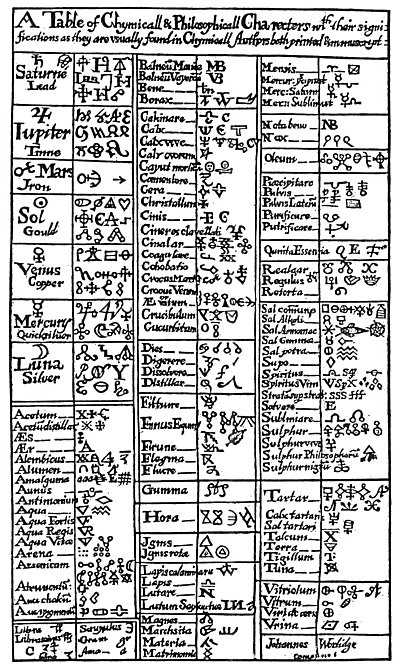 A Table of Chymicall & Philosophicall Charecters wth their signi-
fications as they are usually found in Chymicall Authors both printed & manuscript
Saturne
Lead
Iupiter
Tinne
Mars
Iron
Sol
Gould
Venus
Copper
Mercury
Quicksilver
Luna
Silver
Acetum
Acetu distillat
Æs
Ær
Alembicus
Alumen
Amalgama
Annus
Antimonium
Aqua
Aqua Fortis
Aqua Regis
Aqua Vitæ
Arena
Arsenicum
Auripigment
Libra
Gran
Balneu Mariæ MB
Balneu Vaporis VB
Bene
Borax
Calcinare
Calx
Calx vive
Calx ovorum
Caput mortuu
Cæmentare
Cera
Christallum
Cinis
Cineres clavellati
Cinabar
Coagulare
Cohobatio
Crocus Martis
Crocus Veneris
Æs ustum
Crucibulum
Cucurbitum
Dies
Digerere
Dissolvere
Distillar
Filtrare
Fimus Equin
Flegma
Fluere
Gumma
Hora
Ignis
Ignis rota
Lapis calaminare
Lapis
Lutare
Lutum Sapientiæ
Magnes
Marchsita
Materia
Matrimoniu
Mensis
Mercur: præcipit
Merc: Saturn
Merc: Sublimat
Notabene NB
Nox
Oleum
Præcipitare
Pulvis
Pulvis Laterum
Purificare
Putrificare
Quinta Essentia Q E
Realgar
Regulus
Retorta
Sal comune
Sal Alkali
Sal Armoniac
Sal Gemma
Sal petra
Sapo
Spiritus
Spiritus Vini
Stratum super strat: SSS
Solvere
Sublimare
Sulphur
Sulphur vive
Sulphur Philosophoru
Sulphur nigru
Tartar
Calx tartari
Sal tartari
Talcum
Terra
Tigillum
Tutia
Vitriolum
Vitrum
Viride æris
Urina
Johannes Worlidge